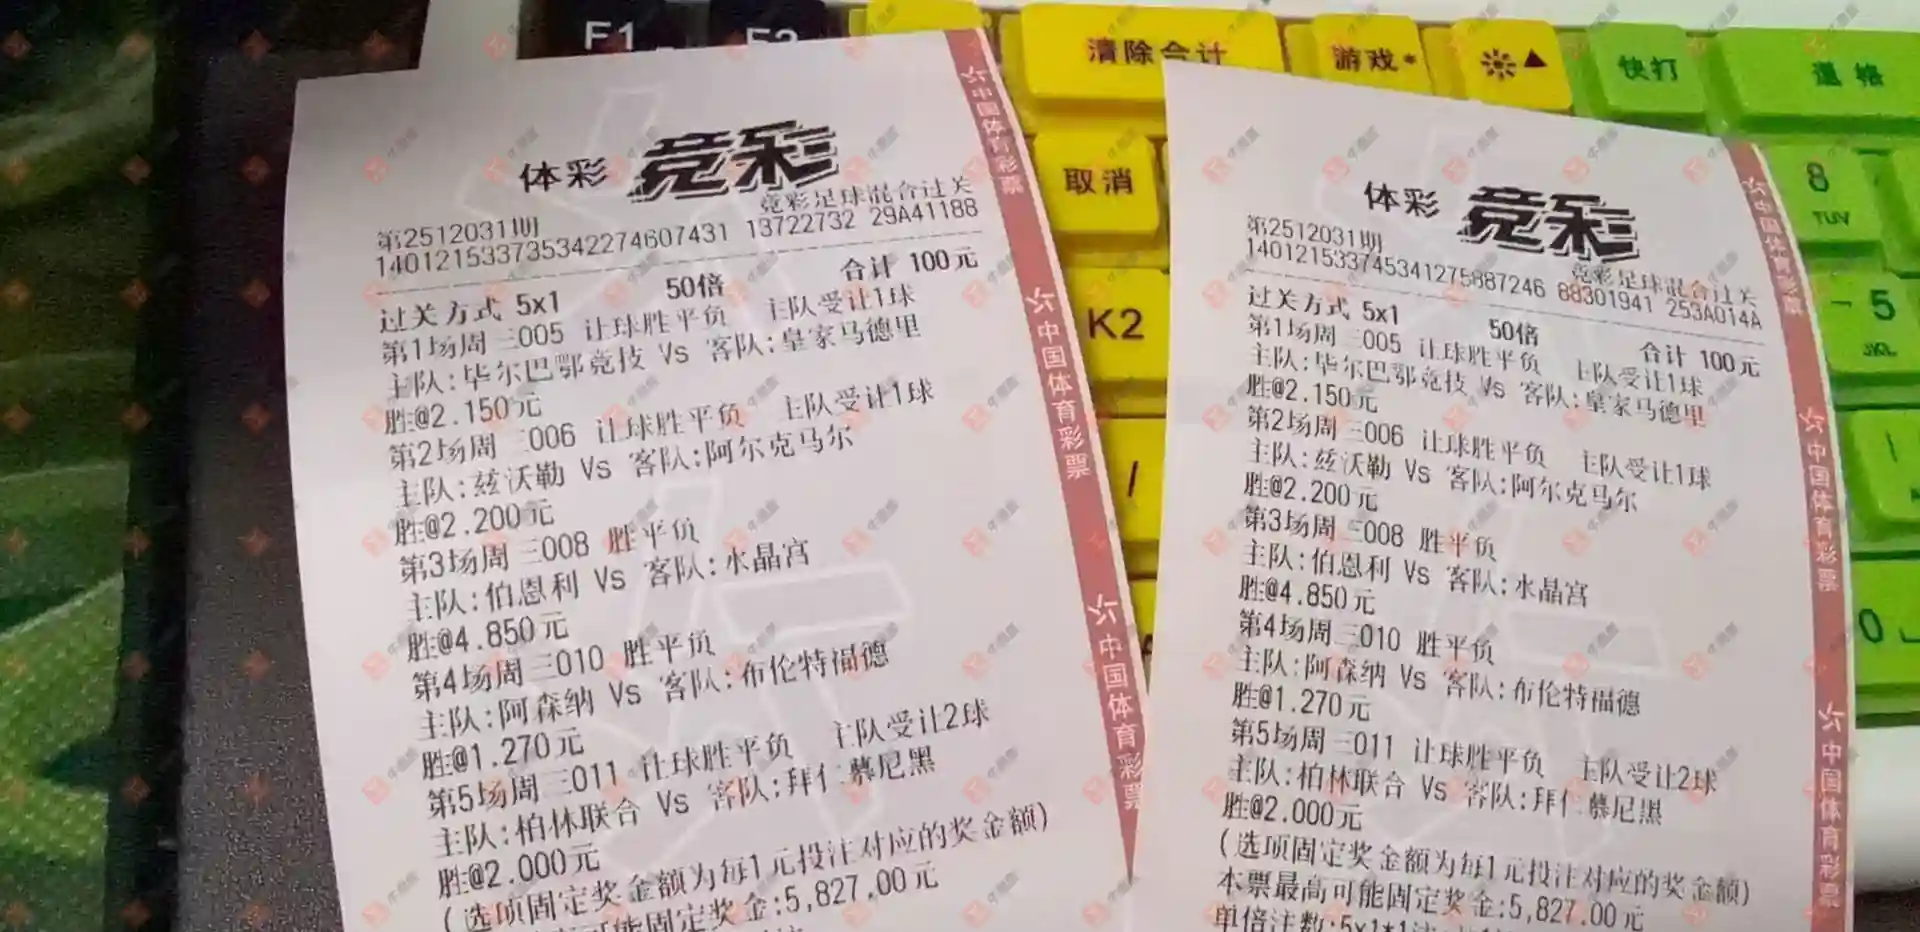 F1
清除合计
游戏*
快打
体彩 竞彩
竞彩足球混合过关
第2512031期
140121533735342274607431 13722732 29A41188
过关方式 5x1 50倍 合计 100元
第1场周三005 让球胜平负 主队受让1球
主队:毕尔巴鄂竞技 Vs 客队:皇家马德里
胜@2.150元
第2场周三006 让球胜平负 主队受让1球
主队:兹沃勒 Vs 客队:阿尔克马尔
胜@2.200元
第3场周三008 胜平负
主队:伯恩利 Vs 客队:水晶宫
胜@4.850元
第4场周三010 胜平负
主队:阿森纳 Vs 客队:布伦特福德
胜@1.270元
第5场周三011 让球胜平负 主队受让2球
主队:柏林联合 Vs 客队:拜仁慕尼黑
胜@2.000元
(选项固定奖金额为每1元投注对应的奖金额)
可能固定奖金:5,827.00元
中国体育彩票
中国体育彩票
中国体育彩票
取消
K2
/
体彩 竞彩
第2512031期
竞彩足球混合过关
140121533745341275887246 88301941 253A014A
过关方式 5x1 50倍 合计 100元
第1场周三005 让球胜平负 主队受让1球
主队:毕尔巴鄂竞技 Vs 客队:皇家马德里
胜@2.150元
第2场周三006 让球胜平负 主队受让1球
主队:兹沃勒 Vs 客队:阿尔克马尔
胜@2.200元
第3场周三008 胜平负
主队:伯恩利 Vs 客队:水晶宫
胜@4.850元
第4场周三010 胜平负
主队:阿森纳 Vs 客队:布伦特福德
胜@1.270元
第5场周三011 让球胜平负 主队受让2球
主队:柏林联合 Vs 客队:拜仁慕尼黑
胜@2.000元
(选项固定奖金额为每1元投注对应的奖金额)
本票最高可能固定奖金:5,827.00元
单倍注数:5x1*1注
中国体育彩票
中国体育彩票
中国体育彩票
8
TUV
5
JKL
0